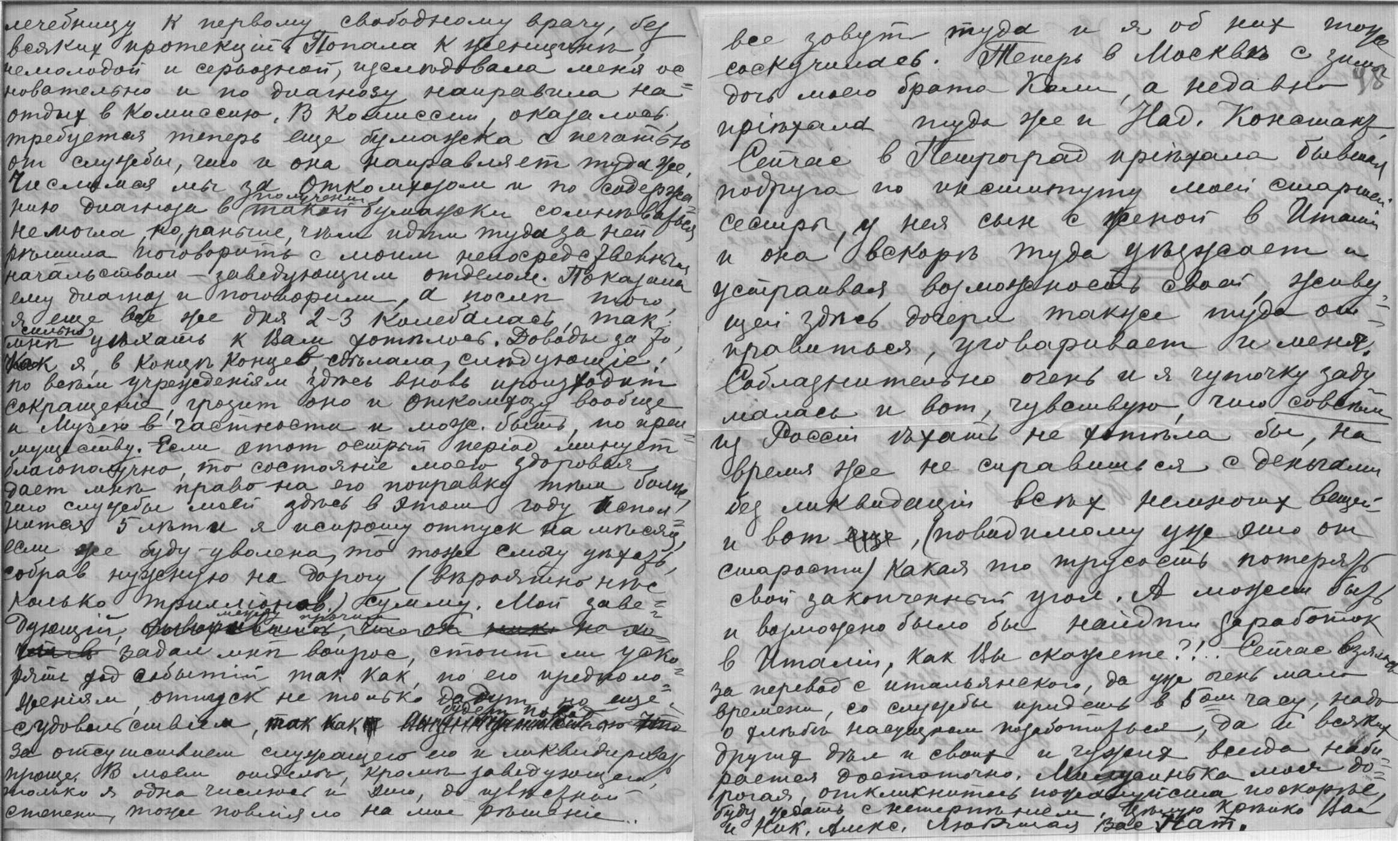 лечебницу к первому свободному врачу, без
всяких протекцій. Попала к женщинѣ,
немолодой и серьозной, изслѣдовала меня ос=
новательно и по диагнозу направила на
отдых в Комиссию. В Комиссии, оказалось,
требуется теперь еще бумажка с печатью
от службы, что и она направляет туда же.
Числимся мы за Откомхозом и по содержа=
нию диагноза в получении такой бумажки сомнѣваться
не могла, но раньше, чѣм идти туда за ней
рѣшила поговорить с моим непосредственным
начальством – заведующим отделом. Показала
ему диагноз и поговорили, а послѣ того,
я еще все же дня 2-3 колебалась, так
мнѣ сильно уѣхать к Вам хотѣлось. Доводы за то,
как я, в концѣ концев, сдѣлала, слѣдующіе:
по всѣм учрежденіям здѣсь вновь производит
сокращеніе, грозит оно и откомхозу вообще
и Музею в частности и мож. быть, по преи=
муществу. Если этот острый період минует
благополучно, то состояніе моего здоровья
дает мнѣ право на его поправку тѣм более,
что службы моей здѣсь в этом году испол=
нится 5 лѣт и я испрошу отпуск на мѣсяц,
если же буду уволена, то тоже смогу уѣхать,
собрав нужную на дорогу (вѣроятно нѣс=
колько триллионов) сумму. Мой заве=
дующій, между прочим
задал мнѣ вопрос, стоит ли уско=
рять ход событій так как, по его предполо=
женіям, отпуск не только дадут, но еще
с удовольствіем, так как будет
за отсутствіем служащего его и ликвидировать
проще. В моем отделѣ, кромѣ заведующего,
только я одна числюсь и это, до извѣстной
степени, тоже повліяло на мое рѣшение..
все зовут туда и я об них тоже
соскучилась. Теперь в Москвѣ с зимы
дочь моего брата Коли, а недавно
пріѣхала туда же и Над. Констант.
Сейчас в Петроград пріѣхала бывшая
подруга по институту моей старшей
сестры, у нея сын с женой в Италіи
и она вскорѣ туда уѣзжает и
устраивая возможность своей, живу=
щей здѣсь дочери также туда от=
правиться, уговаривает и меня.
Соблазнительно очень и я чуточку заду
малась и вот, чувствую, что совсѣм
из Россіи ѣхать не хотѣла бы, на
время же не справишься с деньгами
без ликвидаціи всѣх немногих вещей
и вот, (повидимому уже это от
старости) какая то трусость потерять
свой законченный угол. А может быть
и возможно было бы найти заработок
в Италіи, как Вы скажете?!.. Сейчас взялась
за перевод с итальянского, да уж очень мало
времени, со службы придешь в 5ом часу, надо
о хлѣбѣ насущном позаботиться, да и всяких
других дѣл и своих и чужих всегда наби
рается достаточно. Милусинька моя до=
рогая, откликнитесь пожалуйста поскорѣе,
буду ждать с нетерпѣнием. Цѣлую крѣпко Вас
и Ник. Алекс. Любящая Вас Нат.
98